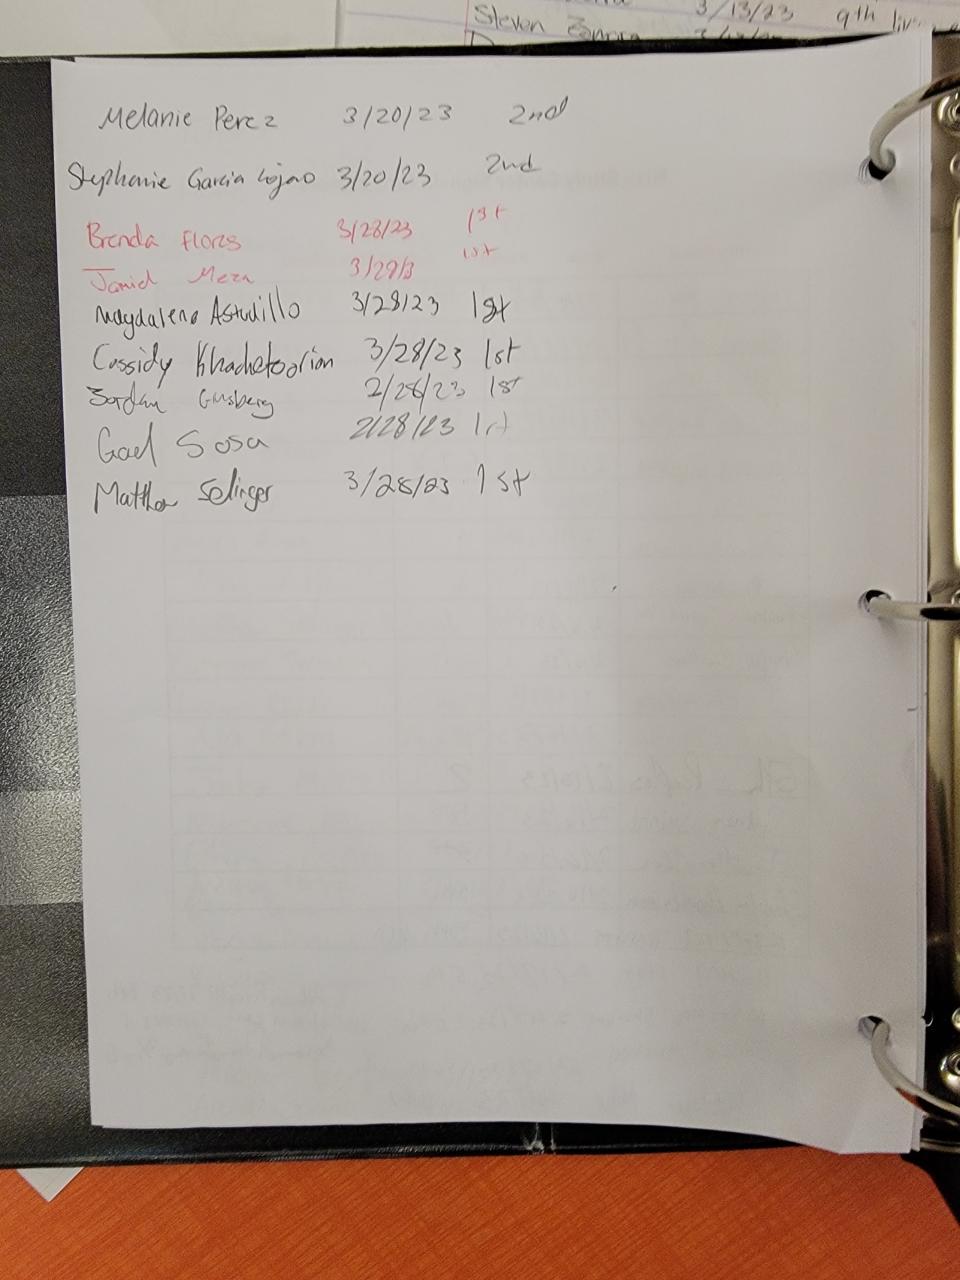 Steven Zamora 3/13/23 9th
Melanie Perez 3/20/23 2nd
Stephanie Garcia Lojano 3/20/23 2nd
Brenda Flores 3/28/23 1st
Jamid Meza 3/29/3 1st
Magdalena Astudillo 3/28/23 1st
Cassidy Khachetoorian 3/28/23 1st
Jordan Ginsberg 2/28/23 1st
Gael Sosa 2/28/23 1st
Matthew Selinger 3/28/23 1st